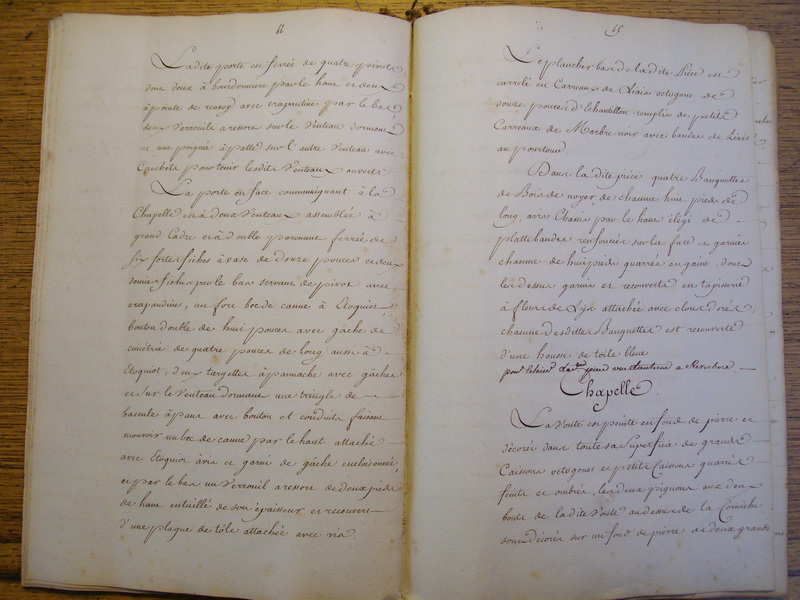 11
La dite porte est ferrée de quatre pivots
donc deux à bourdonniere par le haut et deux
à pointe de renvoy avec crapaudine par le bas
deux Verrouils a ressort sur le Venteau dormant
et une poignée à patte sur l'autre Venteau avec
Crochets pour tenir lesdits Venteaux ouverts.
La porte en face communiquant à la
Chapelle est à deux Venteaux assemblée à
grand Cadre et à double parement ferrée de
six fortes fiches à vase de douze pouces et deux
demie fiches par le bas servant de pivot avec
crapaudines, un fort bec de canne à Etoquiot,
bouton double de huit pouces avec gâche de
cimétrie de quatre pouces de long aussi à
Etoquiot, deux targettes à pannache avec gâches
et sur le Venteau dormant une tringle de
bascule à pans avec bouton et conduits faisant
mouvoir un bec de canne par le haut attaché
avec Etoquiot à vis et garni de gâche encloisonnée,
et par le bas un Verrouil a ressort de deux pieds
de haut entaillé de son épaisseur et recouvert
d'une plaque de tôle attachée avec vis.
15
Le plancher bas de la dite Piece est
carrelé en Carreaux de Liais octogone de
douze pouces d'Echantillon remplis de petits
Carreaux de Marbre noir avec bandes de Liais
au pourtour.
Dans la dite piece quatre Banquettes
de Bois de noyer de chacune huit pieds de
long, avec Chassis par le haut élégi de
plattebandes renfoncées sur la face et garnie
chacune de huit pieds quarrés en gaine, donc
les dessus garnis et recouverts en tapisserie
à fleurs de Lys attachée avec clouds dorés,
chacune desdittes Banquettes est recouverte
d'une housse de toile bleue
Chapelle
La Voute est peinte en fond de pierre et
décorée dans toute sa Superficie de grands
Caissons octogones et petits Caissons quarrés
feints et ombrés, les deux pignons aux deux
bouts de la dite Voute au dessus de la Corniche
sont décorés sur un fond de pierre de deux grands